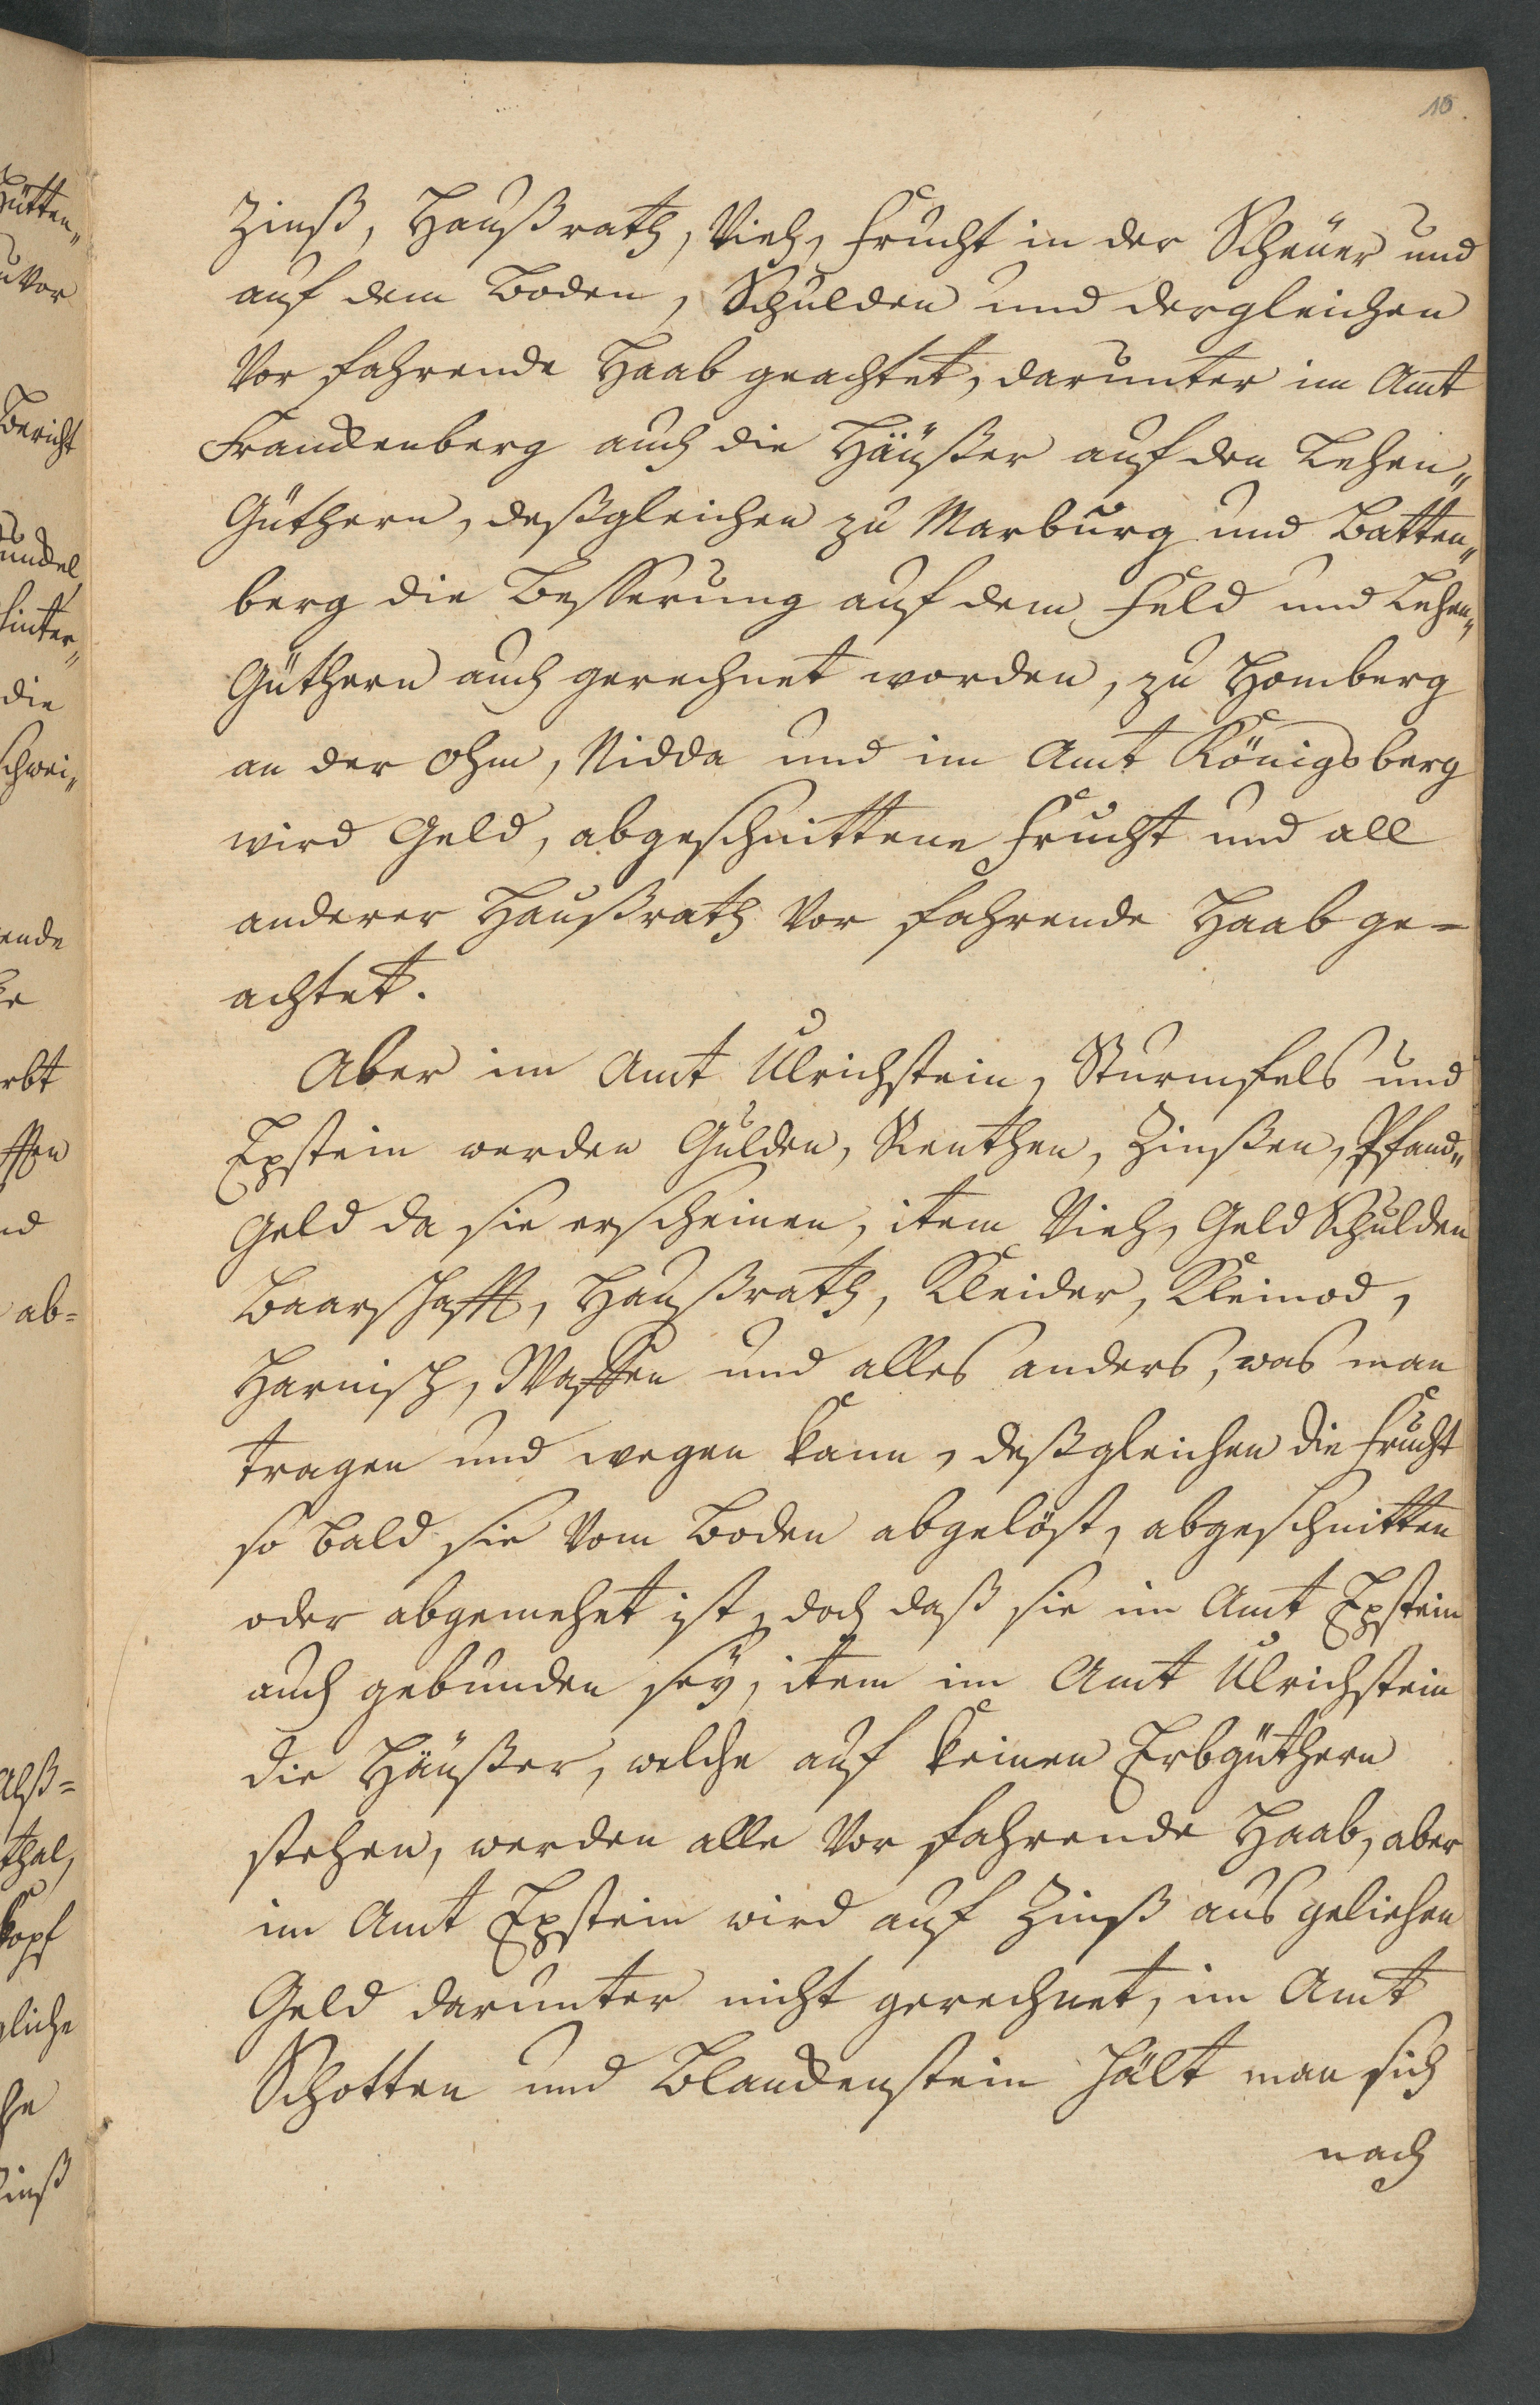 10.
Zinß, Haußrath, Vieh, Frucht in der Scheuer und
auf dem Boden, Schulden und dergleichen
vor fahrende Haab geachtet, darunter im Amt
Franckenberg auch die Häußer auf den Lehen„
Güthern, deßgleichen zu Marburg und Batten„
berg die Besserung auf dem Feld und Lehen„
Güthern auch gerechnet worden, zu Homberg
an der Ohm, Nidda und im Amt Königsberg
wird Geld, abgeschnittene Frucht und all
anderer Haußrath vor fahrende Haab ge=
achtet.
Aber im Amt Ulrichstein, Sturmfels und
Epstein werden Gulden, Renthen, Zinßen, Pfand„
Geld da sie erscheinen, item Vieh, Geld Schulden
Baarschafft, Haußrath, Kleider, Kleinod,
Harnisch, Waffen und alles anders, was man
tragen und wegen kann, deßgleichen die Frucht
so bald sie vom Boden abgelöst, abgeschnitten
oder abgemehet ist, doch daß sie im Amt Epstein
auch gebunden seÿ, item im Amt Ulrichstein
die Häußer, welche auf keinen Erbgüthern
stehen, werden alle vor fahrende Haab, aber
im Amt Epstein wird auf Zinß aus geliehen
Geld darunter nicht gerechnet, im Amt
Schotten und Blanckenstein hält man sich
nach